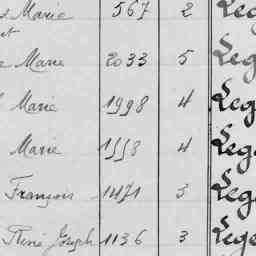 Marie 567 2 Leg
et
Marie 2033 5 Leg
Marie 1998 4 Leg
Marie 1558 4 Leg
François 1471 3 Leg
René Joseph 1136 3 Lege